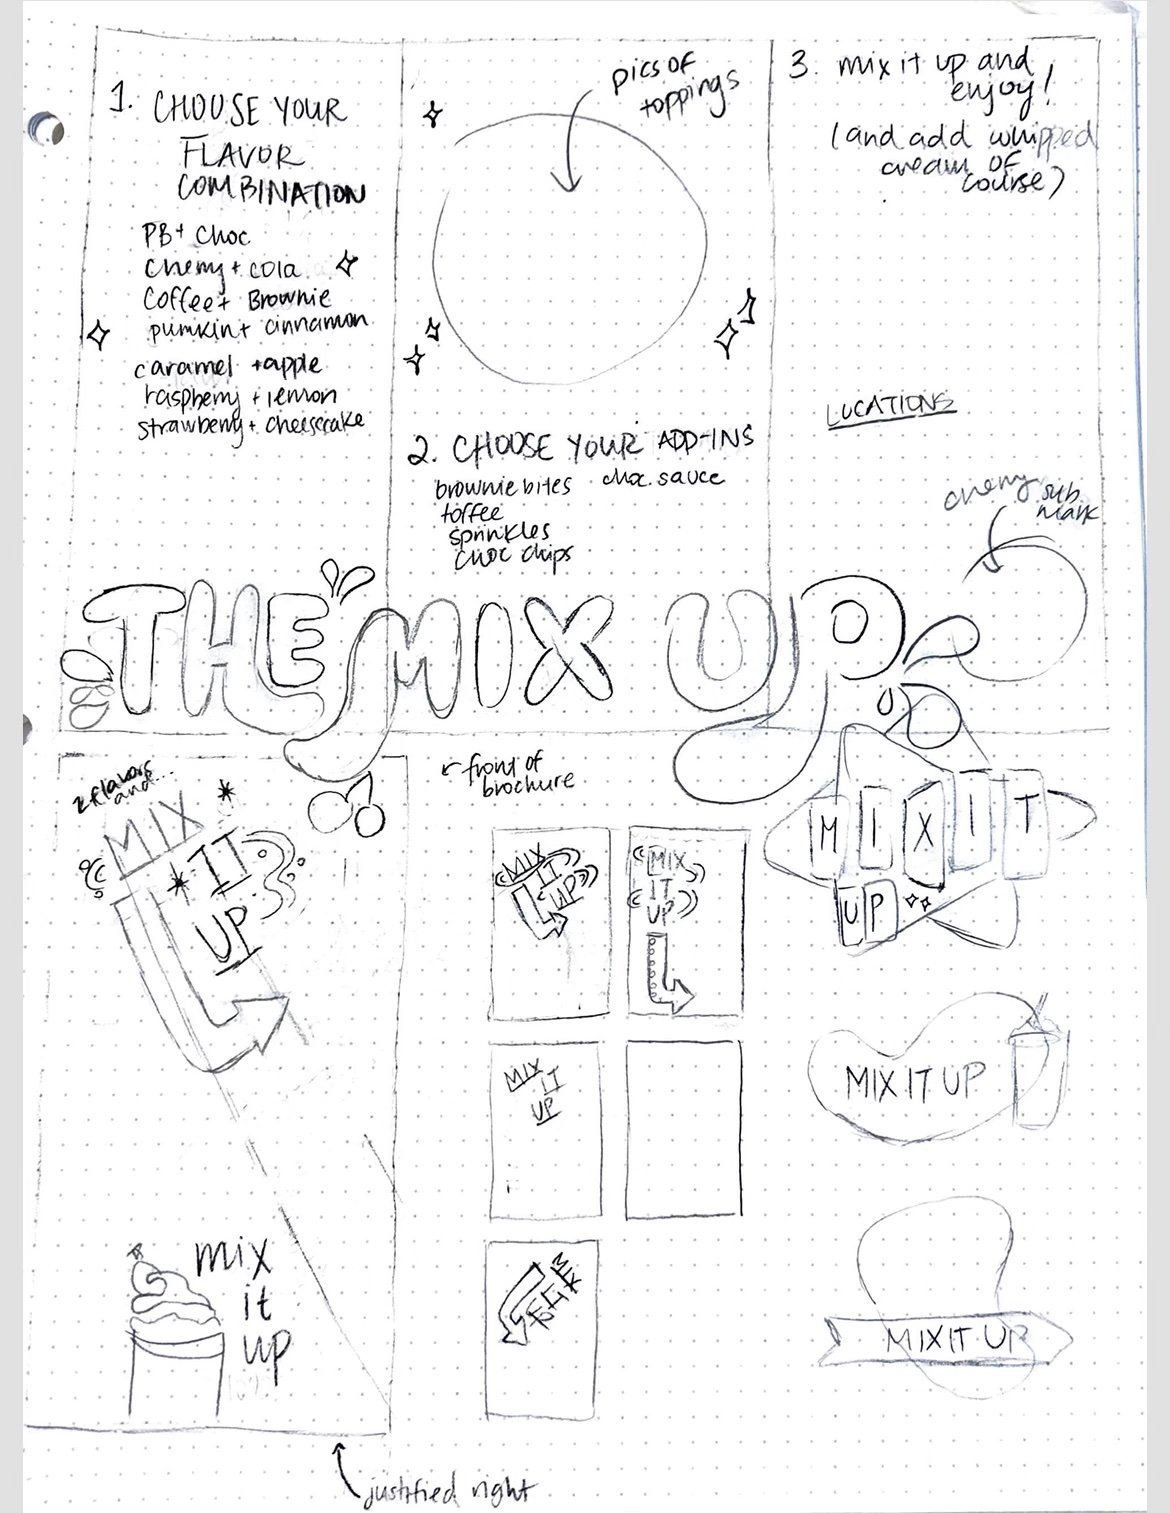 1. CHOOSE YOUR
FLAVOR
COMBINATION
PB + Choc
Cherry + cola
Coffee + Brownie
pumkin + cinnamon
caramel + apple
raspberry + lemon
strawberry + cheesecake
pics of
toppings
2. CHOOSE YOUR ADD-INS
brownie bites choc. sauce
toffee
sprinkles
choc chips
3. mix it up and
enjoy!
(and add whipped
cream of
course)
LOCATIONS
cherry sub
mark
THE MIX UP
2 flavors
and...
MIX
IT
UP
mix
it
up
justified right
front of
brochure
MIX
IT
UP
MIX
IT
UP
MIX
IT
UP
MIX IT
UP
MIX IT UP
MIX IT UP